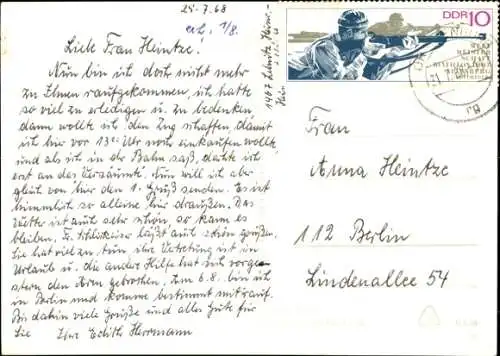 25-7.68
Liebe Frau Heintze!
Nun bin ich doch nicht mehr
zu Ihnen raufgekommen, ich hatte
so viel zu erledigen u. zu bedenken
dann wollte ich den Zug schaffen, damit
ich hier vor 13°° Uhr noch einkaufen wollte
und als ich in der Bahn saß, dachte ich
erst an das Versäumte. Nun will ich aber
gleich von hier den 1. Gruß senden. Es ist
himmlisch so alleine hier draußen. Das
Wetter ist auch sehr schön so kann es
bleiben. Fr. läßt auch schön grüßen.
Sie hat viel zu tun ihre Vertretung ist in
Urlaub u. die andere Hilfe hat sich vorge-
stern den Arm gebrochen. Zum 6.8. bin ich
in Berlin und komme bestimmt mit rauf.
Bis dahin viele Grüße und alles Gute für
Sie Ihre Edith Herrmann
DDR 10
Frau
Anna Heintze
112 Berlin
Lindenallee 54